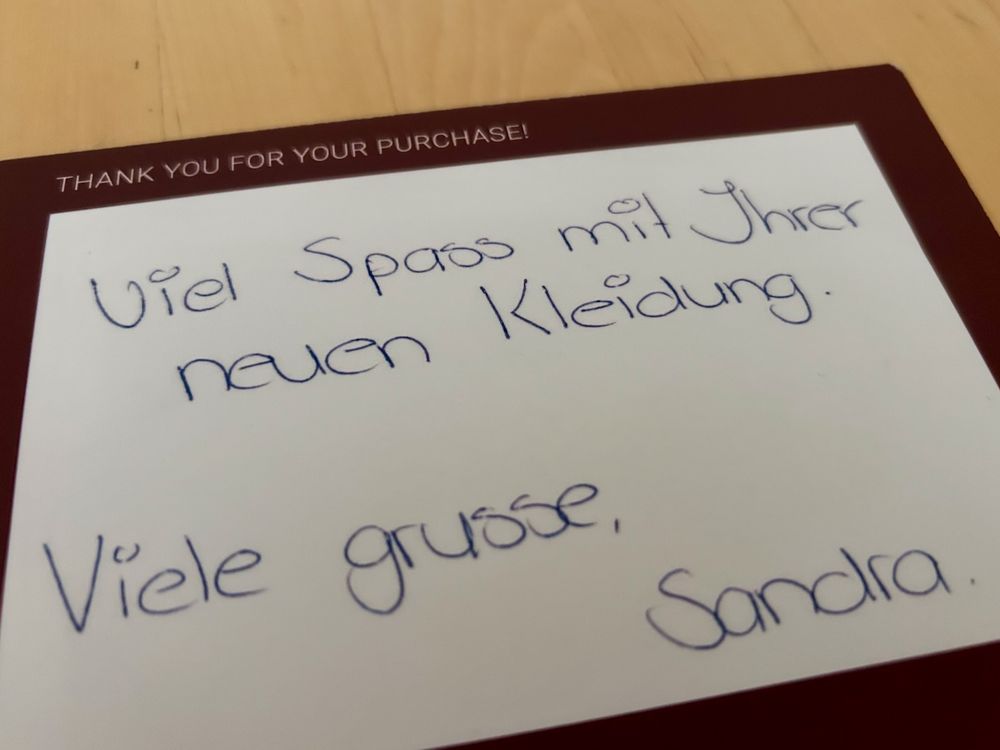 THANK YOU FOR YOUR PURCHASE!
Viel Spass mit Ihrer
neuen Kleidung.
Viele grusse,
Sandra.